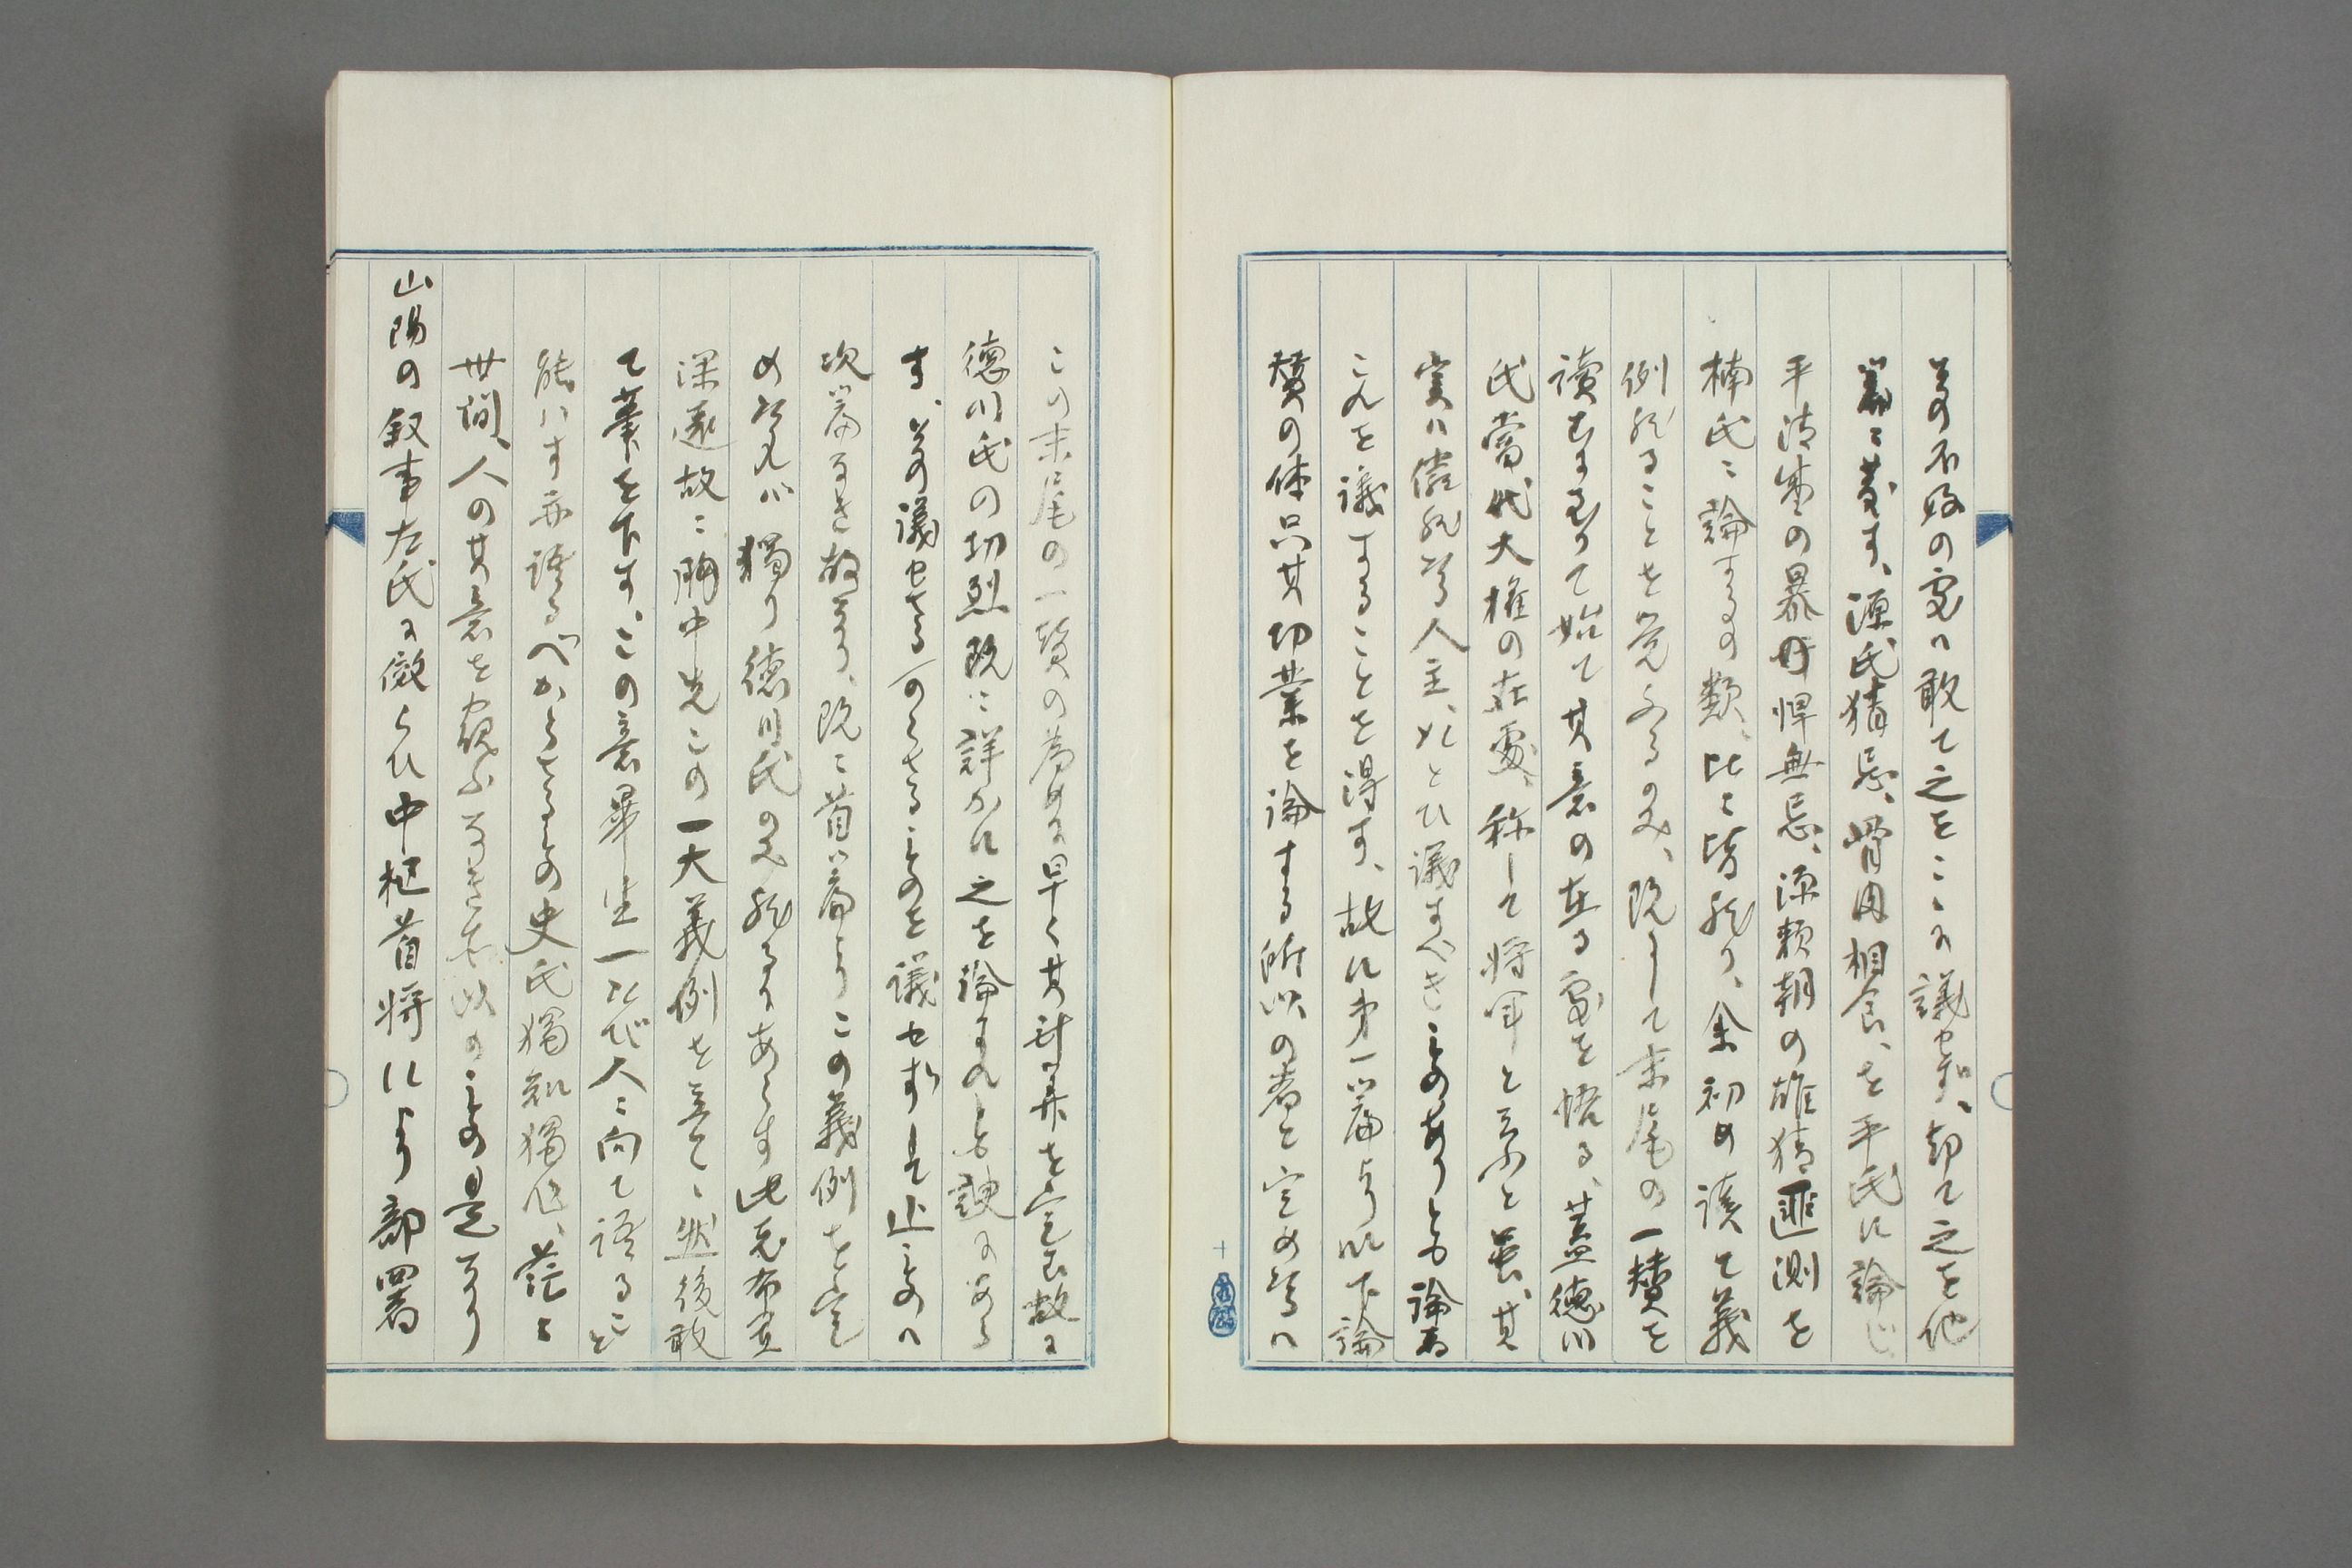 其不好の處ハ敢て之をこゝに議せず、却て之を他
篇ニ發す、源氏猜忌、骨肉相食、を平氏に論じ
平清盛の暴悍無忌、源頼朝の雄猜匪測を
楠氏ニ論するの類、比々皆然り、余初め讀て義
例然ることを覚ふるのみ、既にして末尾の一賛を
讀むに至りて始て其意の在る處を悟る、蓋徳川
氏當代大権の在處、称して将軍と云ふと雖、其
実ハ儼然たる人主、允とひ議すべきものありとも論者
これを議することを得す、故に第一篇より以下論
賛の体只其功業を論する所以の者と定めたるハ
この末尾の一賛の為めに早く其計畫を定む故に
徳川氏の功烈既ニ詳かに之を論するも諛にあら
す、其議せさるのくさるものを議せずして止ものハ
次篇なき故なり、既ニ首篇よりこの義例を定
め たれハ獨り徳川氏のみ然るにあらす此老布置
深遠故ニ胸中先この一大義例を立て、然後敢
て筆を下す、この意畢生一たび人ニ向て語ること
能ハす亦語るべからさるもの史氏獨知獨作、茫々
世間、人の其意を窺ふなき所以のもの是なり
山陽の叙事左氏に倣らひ中枢首将により部署